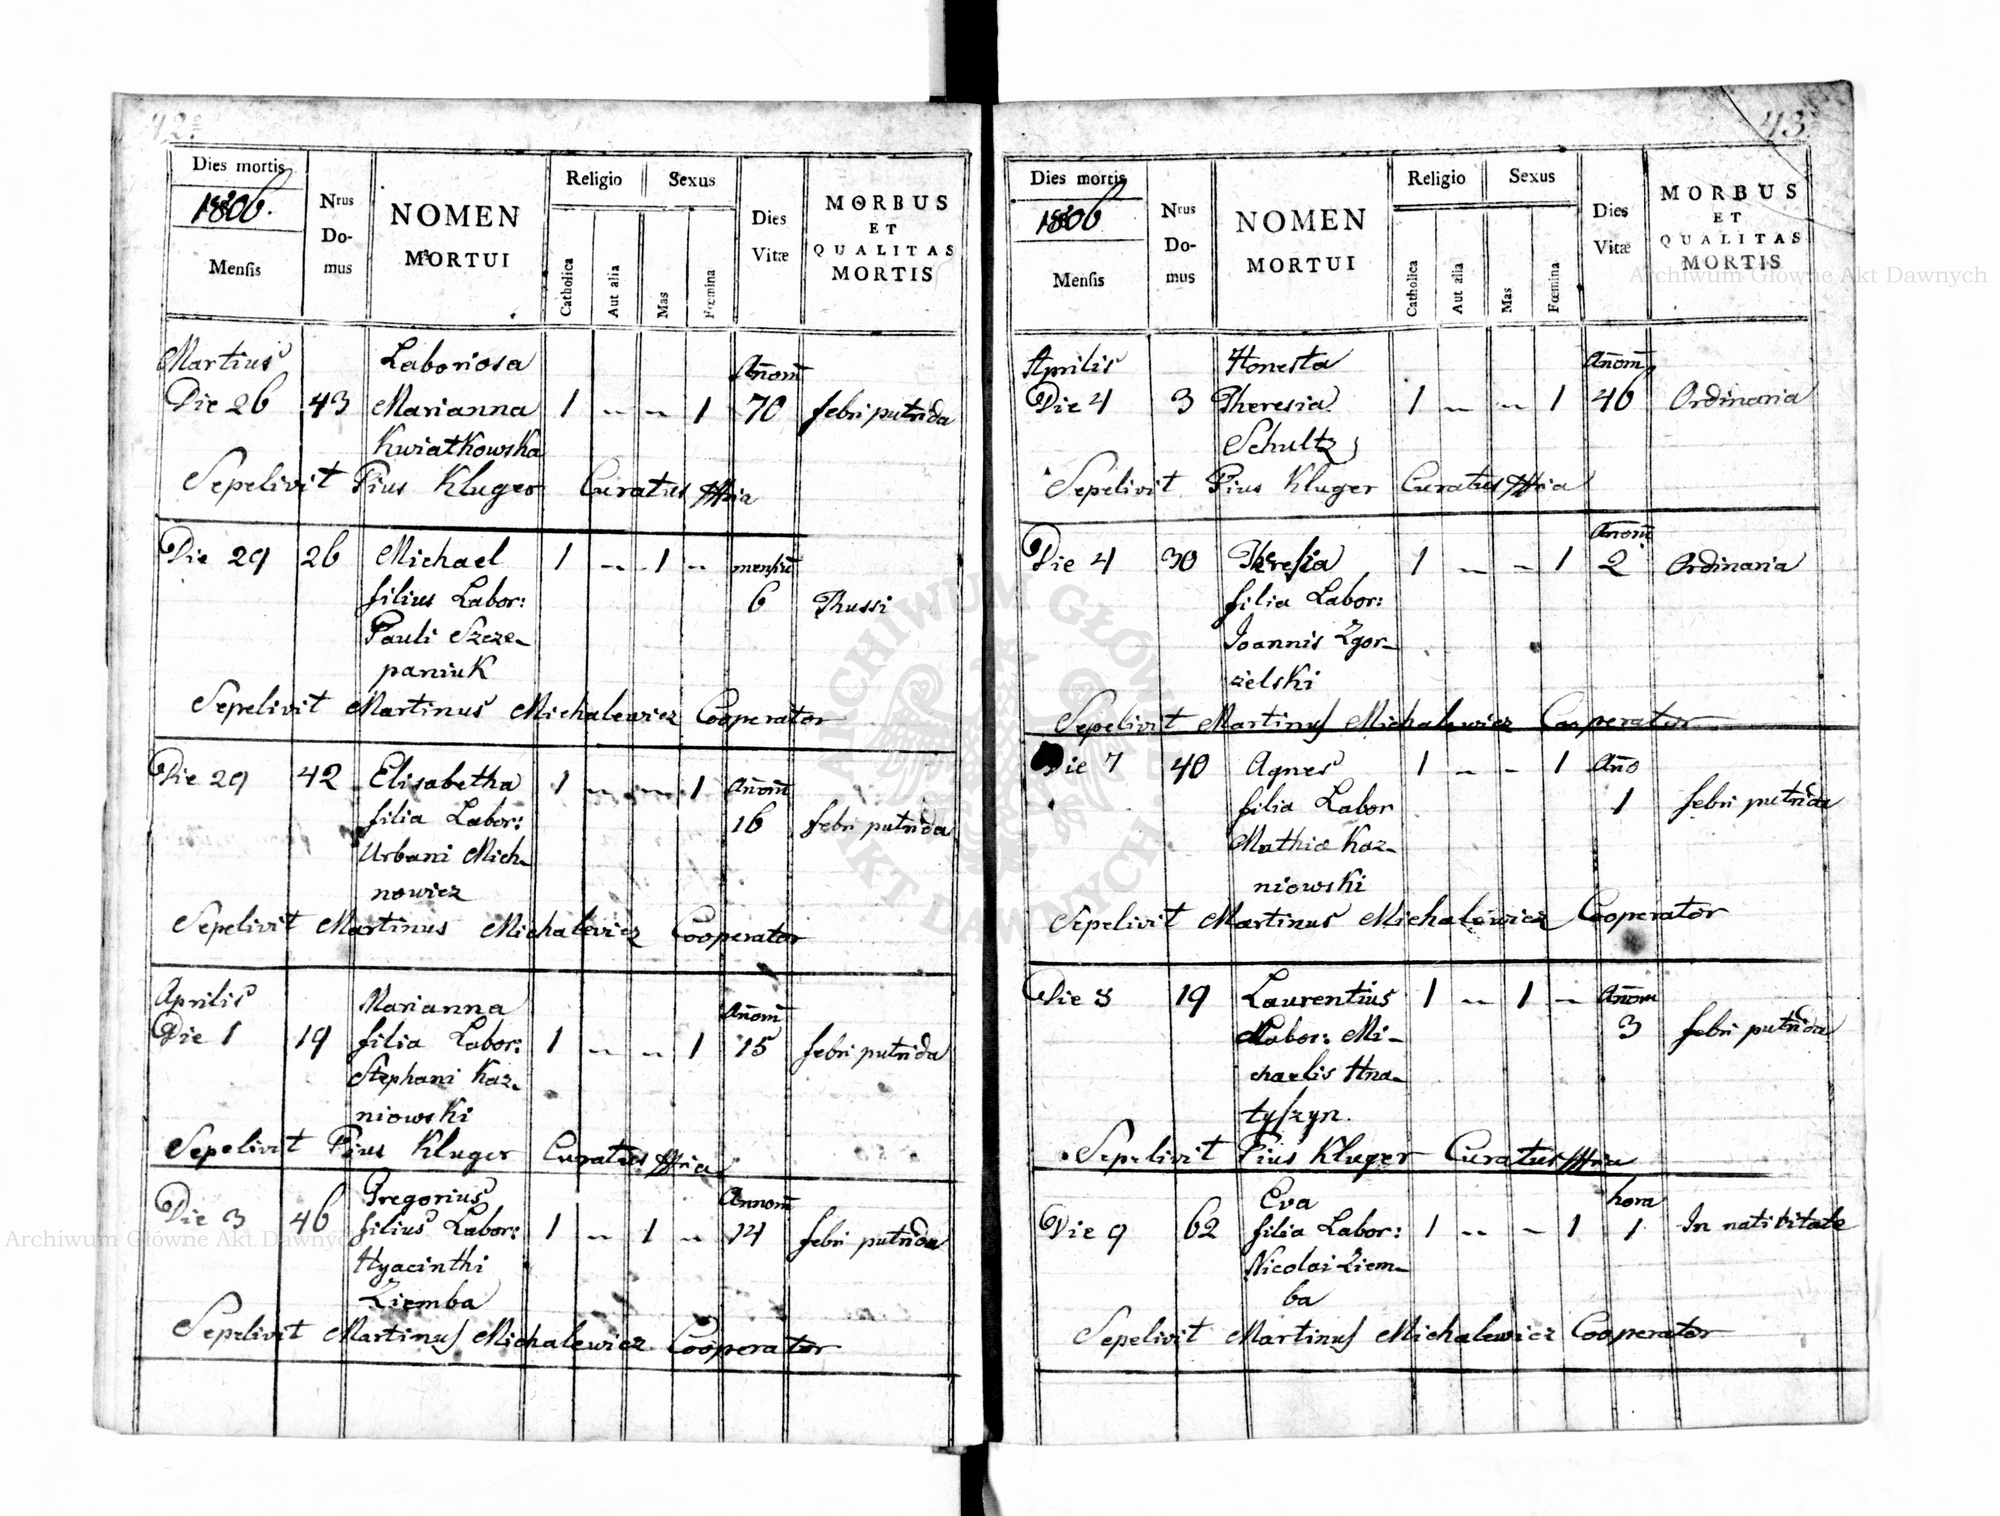 42
Dies mortis
1806.
Mensis
Nrus Do-mus
NOMEN
MORTUI
Religio
Catholica
Aut alia
Sexus
Mas
Fœmina
Dies
Vitæ
MORBUS
ET
QUALITAS
MORTIS
Martius
Laboriosa
Anom
Die 26 43 Marianna 1 -- -- 1 70 febri putrida
Kwiatkowska
Sepelivit Pius Kluger Curatus
Die 29 26 Michael 1 -- 1 -- mensiu
filius Labor: 6 Thussi
Pauli Szcze-
paniuk
Sepelivit Martinus Michalewicz Cooperator
Die 29 42 Elisabetha 1 -- -- 1 Anom
filia Labor: 16 febri putrida
Urbani Mich-
nowicz
Sepelivit Martinus Michalevicz Cooperator
Aprilis Marianna Anom
Die 1 19 filia Labor: 1 -- -- 1 15 febri putrida
Stephani Kaz-
niowski
Sepelivit Pius Kluger Curatus
Gregorius Annom
Die 3 46 filius Labor: 1 -- 1 -- 14 febri putrida
Hyacinthi
Ziemba
Sepelivit Martinus Michalewicz Cooperator
43
Dies mortis
1806
Mensis
Nrus Do-mus
NOMEN
MORTUI
Religio
Catholica
Aut alia
Sexus
Mas
Fœmina
Dies
Vitæ
MORBUS
ET
QUALITAS
MORTIS
Aprilis Honesta Anom
Die 4 3 Theresia 1 -- -- 1 46 Ordinaria
Schultz
Sepelivit Pius Kluger Curatus
Die 4 30 Theresia 1 -- - 1 Anom 2 Ordinaria
filia Labor:
Joannis Zgor-
zielski
Sepelivit Martinus Michalewicz Cooperator
Die 7 40 Agnes 1 -- - 1 Ano
filia Labor 1 febri putrida
Mathia Kaz-
niowski
Sepelivit Martinus Michalewicz Cooperator
Die 8 19 Laurentius 1 -- 1 -- Anom
Labor: Mi- 3 febri putrida
chaelis Hna-
tyszyn.
Sepelivit Pius Kluger Curatus
Eva hora
Die 9 62 filia Labor: 1 -- - 1 1 In nativitate
Nicolai Ziem-
ba
Sepelivit Martinus Michalewicz Cooperator
Archiwum Główne Akt Dawnych
Archiwum Główne Akt Dawnych
ARCHIWUM GŁÓWNE AKT DAWNYCH